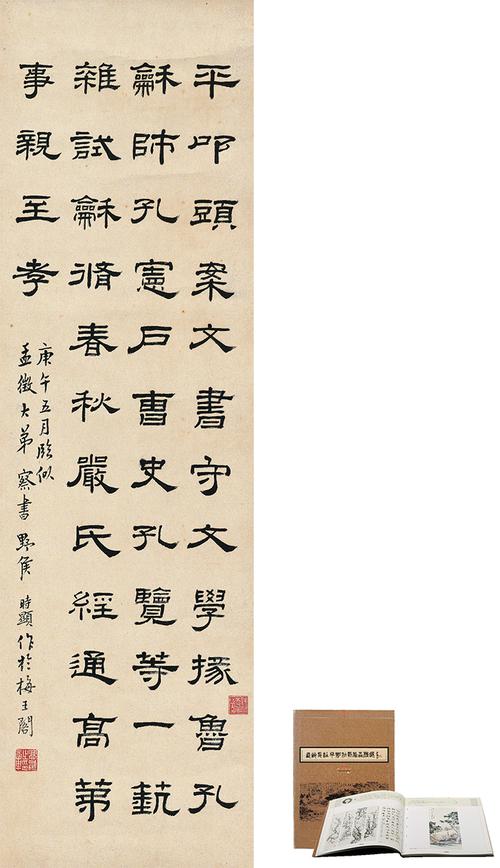 平叩頭案文書守文學掾魯孔
龢師孔憲戶曹史孔覽等一埶
雜試龢脩春秋嚴氏經通高第
事親至孝
庚午五月臨似
孟徵大弟察書 野侯時顯作於梅王閣